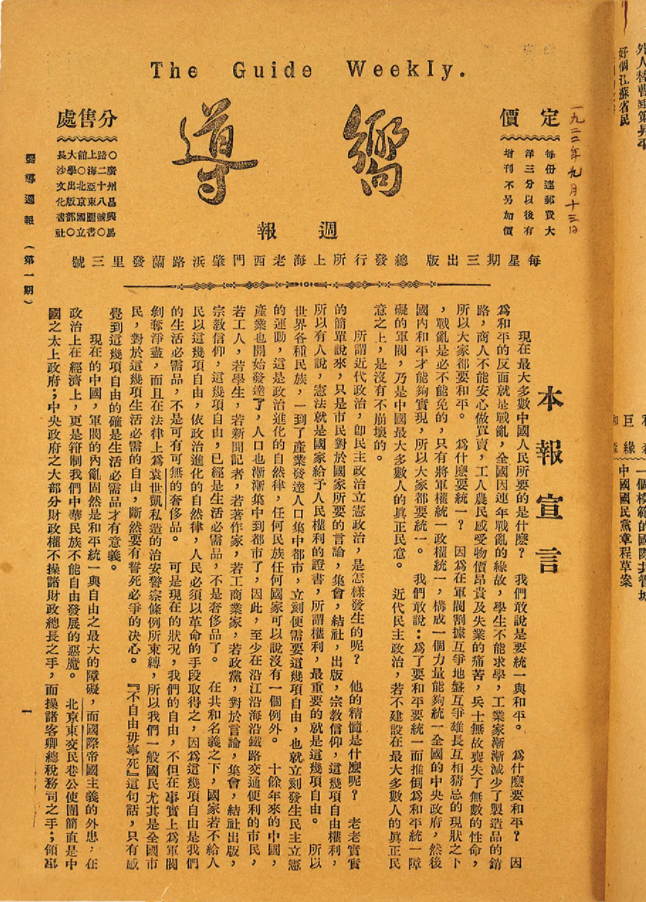 The Guide Weekly.
嚮導
週報
一九二二年九月十三日
定價
每份連郵費大
洋三分以後有
增刊不另加價
分售處
○廣州昌興馬
路二十八號○
上海亞東圖書
館○北京國立
大學出版部○
長沙文化書社
每星期三出版 總發行所上海老西門肇浜路蘭發里三號
本報宣言
現在最大多數中國人民所要的是什麼? 我們敢說是要統一與和平。 爲什麼要和平? 因
爲和平的反面就是戰亂,全國因連年戰亂的緣故,學生不能求學,工業家漸漸減少了製造品的銷
路,商人不能安心做買賣,工人農民感受物價昂貴及失業的痛苦,兵士無故喪失了無數的性命,
所以大家都要和平。 爲什麼要統一? 因爲在軍閥割據互爭地盤互爭雄長互相猜忌的現狀之下
,戰亂是必不能免的,只有將軍權統一政權統一,構成一個力量能夠統一全國的中央政府,然後
國内和平才能夠實現,所以大家都要統一。 我們敢說:爲了要和平要統一而推倒爲和平統一障
礙的軍閥,乃是中國最大多數人的眞正民意。 近代民主政治,若不建設在最大多數人的眞正民
意之上,是沒有不崩壞的。
所謂近代政治,卽民主政治立憲政治,是怎樣發生的呢? 他的精髓是什麼呢? 老老實實
的簡單說來,只是市民對於國家所要的言論,集會,結社,出版,宗教信仰,這幾項自由權利,
所以有人說,憲法就是國家給予人民權利的證書,所謂權利,最重要的就是這幾項自由。 所以
世界各種民族,一到了產業發達人口集中都市,立刻便需要這幾項自由,也就立刻發生民主立憲
的運動,這是政治進化的自然律,任何民族任何國家可以說沒有一個例外。 十餘年來的中國,
產業也開始發達了,人口也漸漸集中到都市了,因此,至少在沿江沿海沿鐵路交通便利的市民,
若工人,若學生,若新聞記者,若著作家,若工商業家,若政黨,對於言論,集會,結社出版,
宗教信仰,這幾項自由,已經是生活必需品,不是奢侈品了。 在共和名義之下,國家若不給人
民以這幾項自由,依政治進化的自然律,人民必須以革命的手段取得之,因爲這幾項自由是我們
的生活必需品,不是可有可無的奢侈品。 可是現在的狀況,我們的自由,不但在事實上爲軍閥
剝奪淨盡,而且在法律上爲袁世凱私造的治安警察條例所束縛,所以我們一般國民尤其是全國市
民,對於這幾項生活必需的自由,斷然要有誓死必爭的決心。 『不自由毋寧死』這句話,只有感
覺到這幾項自由的確是生活必需品才有意義。
現在的中國,軍閥的内亂固然是和平統一與自由之最大的障礙,而國際帝國主義的外患,在
政治上在經濟上,更是箝制我們中華民族不能自由發展的惡魔。 北京東交民巷公使團簡直是中
國之太上政府;中央政府之大部分財政權不操諸財政總長之手,而操諸客卿總稅務司之手;領事
嚮導週報 (第一期)
一
好個江蘇省民
一個模範的國際共管城
巨緣
中國國民黨章程草案